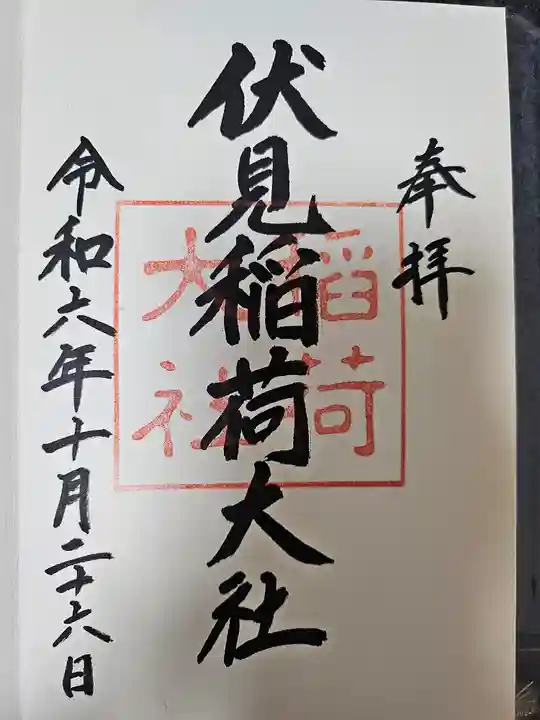 奉拝
伏見稲荷大社
稲荷
大社
令和六年十月二十六日